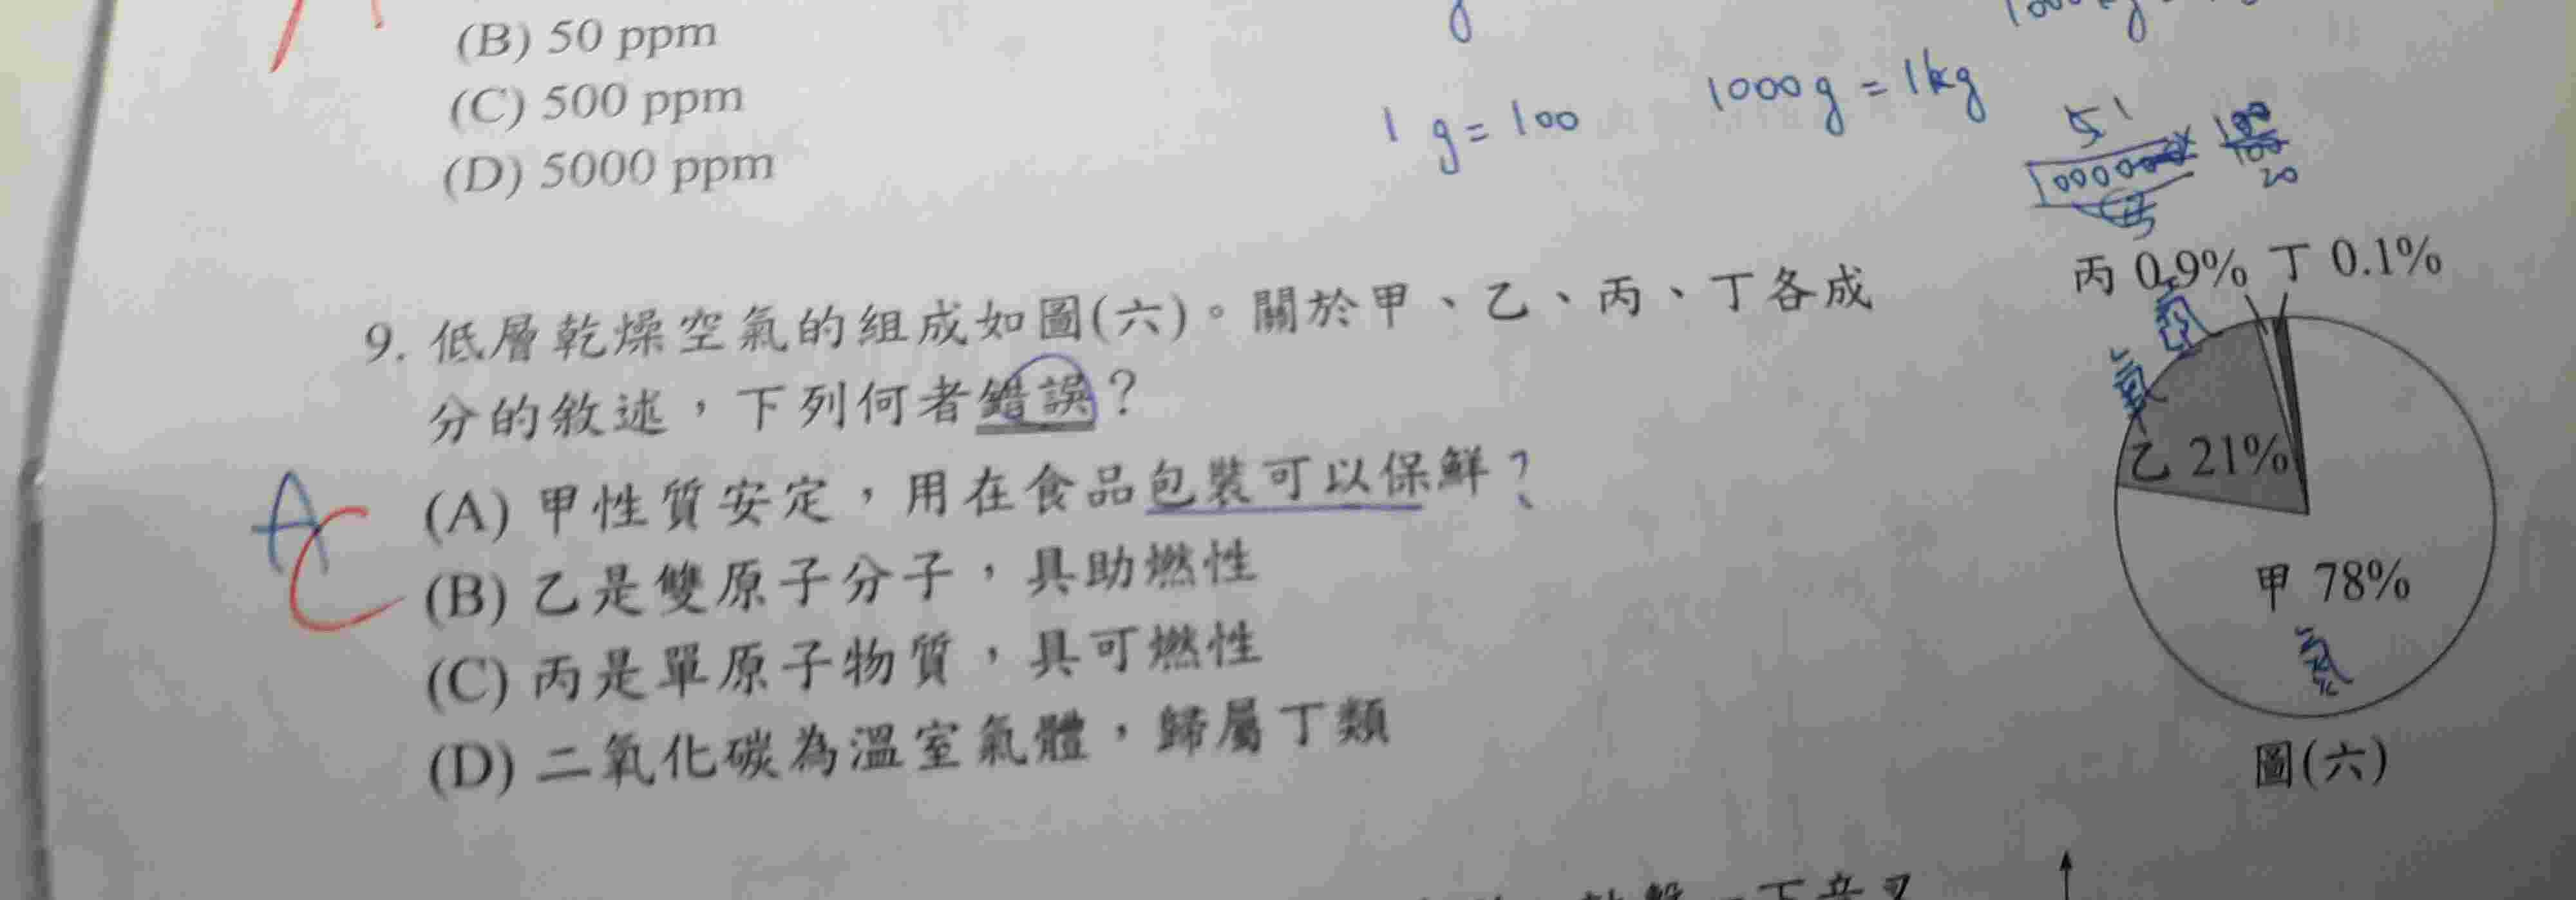 (B) 50 ppm
(C) 500 ppm
(D) 5000 ppm
1 g = 100
1000g = 1kg
丙 0.9% 丁 0.1%
9. 低層乾燥空氣的組成如圖(六)。關於甲、乙、丙、丁各成
分的敘述，下列何者錯誤？
A
C
(A) 甲性質安定，用在食品包裝可以保鮮？
(B) 乙是雙原子分子，具助燃性
(C) 丙是單原子物質，具可燃性
(D) 二氧化碳為溫室氣體，歸屬丁類
乙 21%
甲 78%
氮
圖(六)